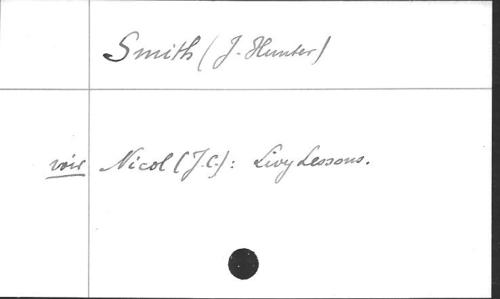 Smith (J. Hunter)
voir Nicol (J.C.): Livy Lessons.